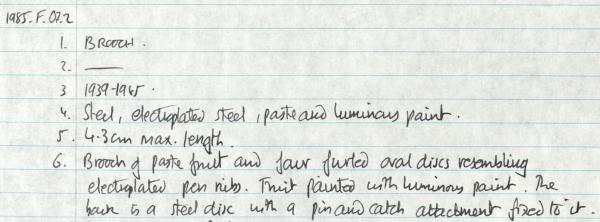 1985.F.07.2
1. BROOCH.
2. ———
3 1939-1945.
4. Steel, electroplated steel, paste and luminous paint.
5. 4.3cm max. length.
6. Brooch of paste fruit and four furled oval discs resembling
electroplated pen nibs. Fruit painted with luminous paint. The
back is a steel disc with a pin and catch attachment fixed to it.